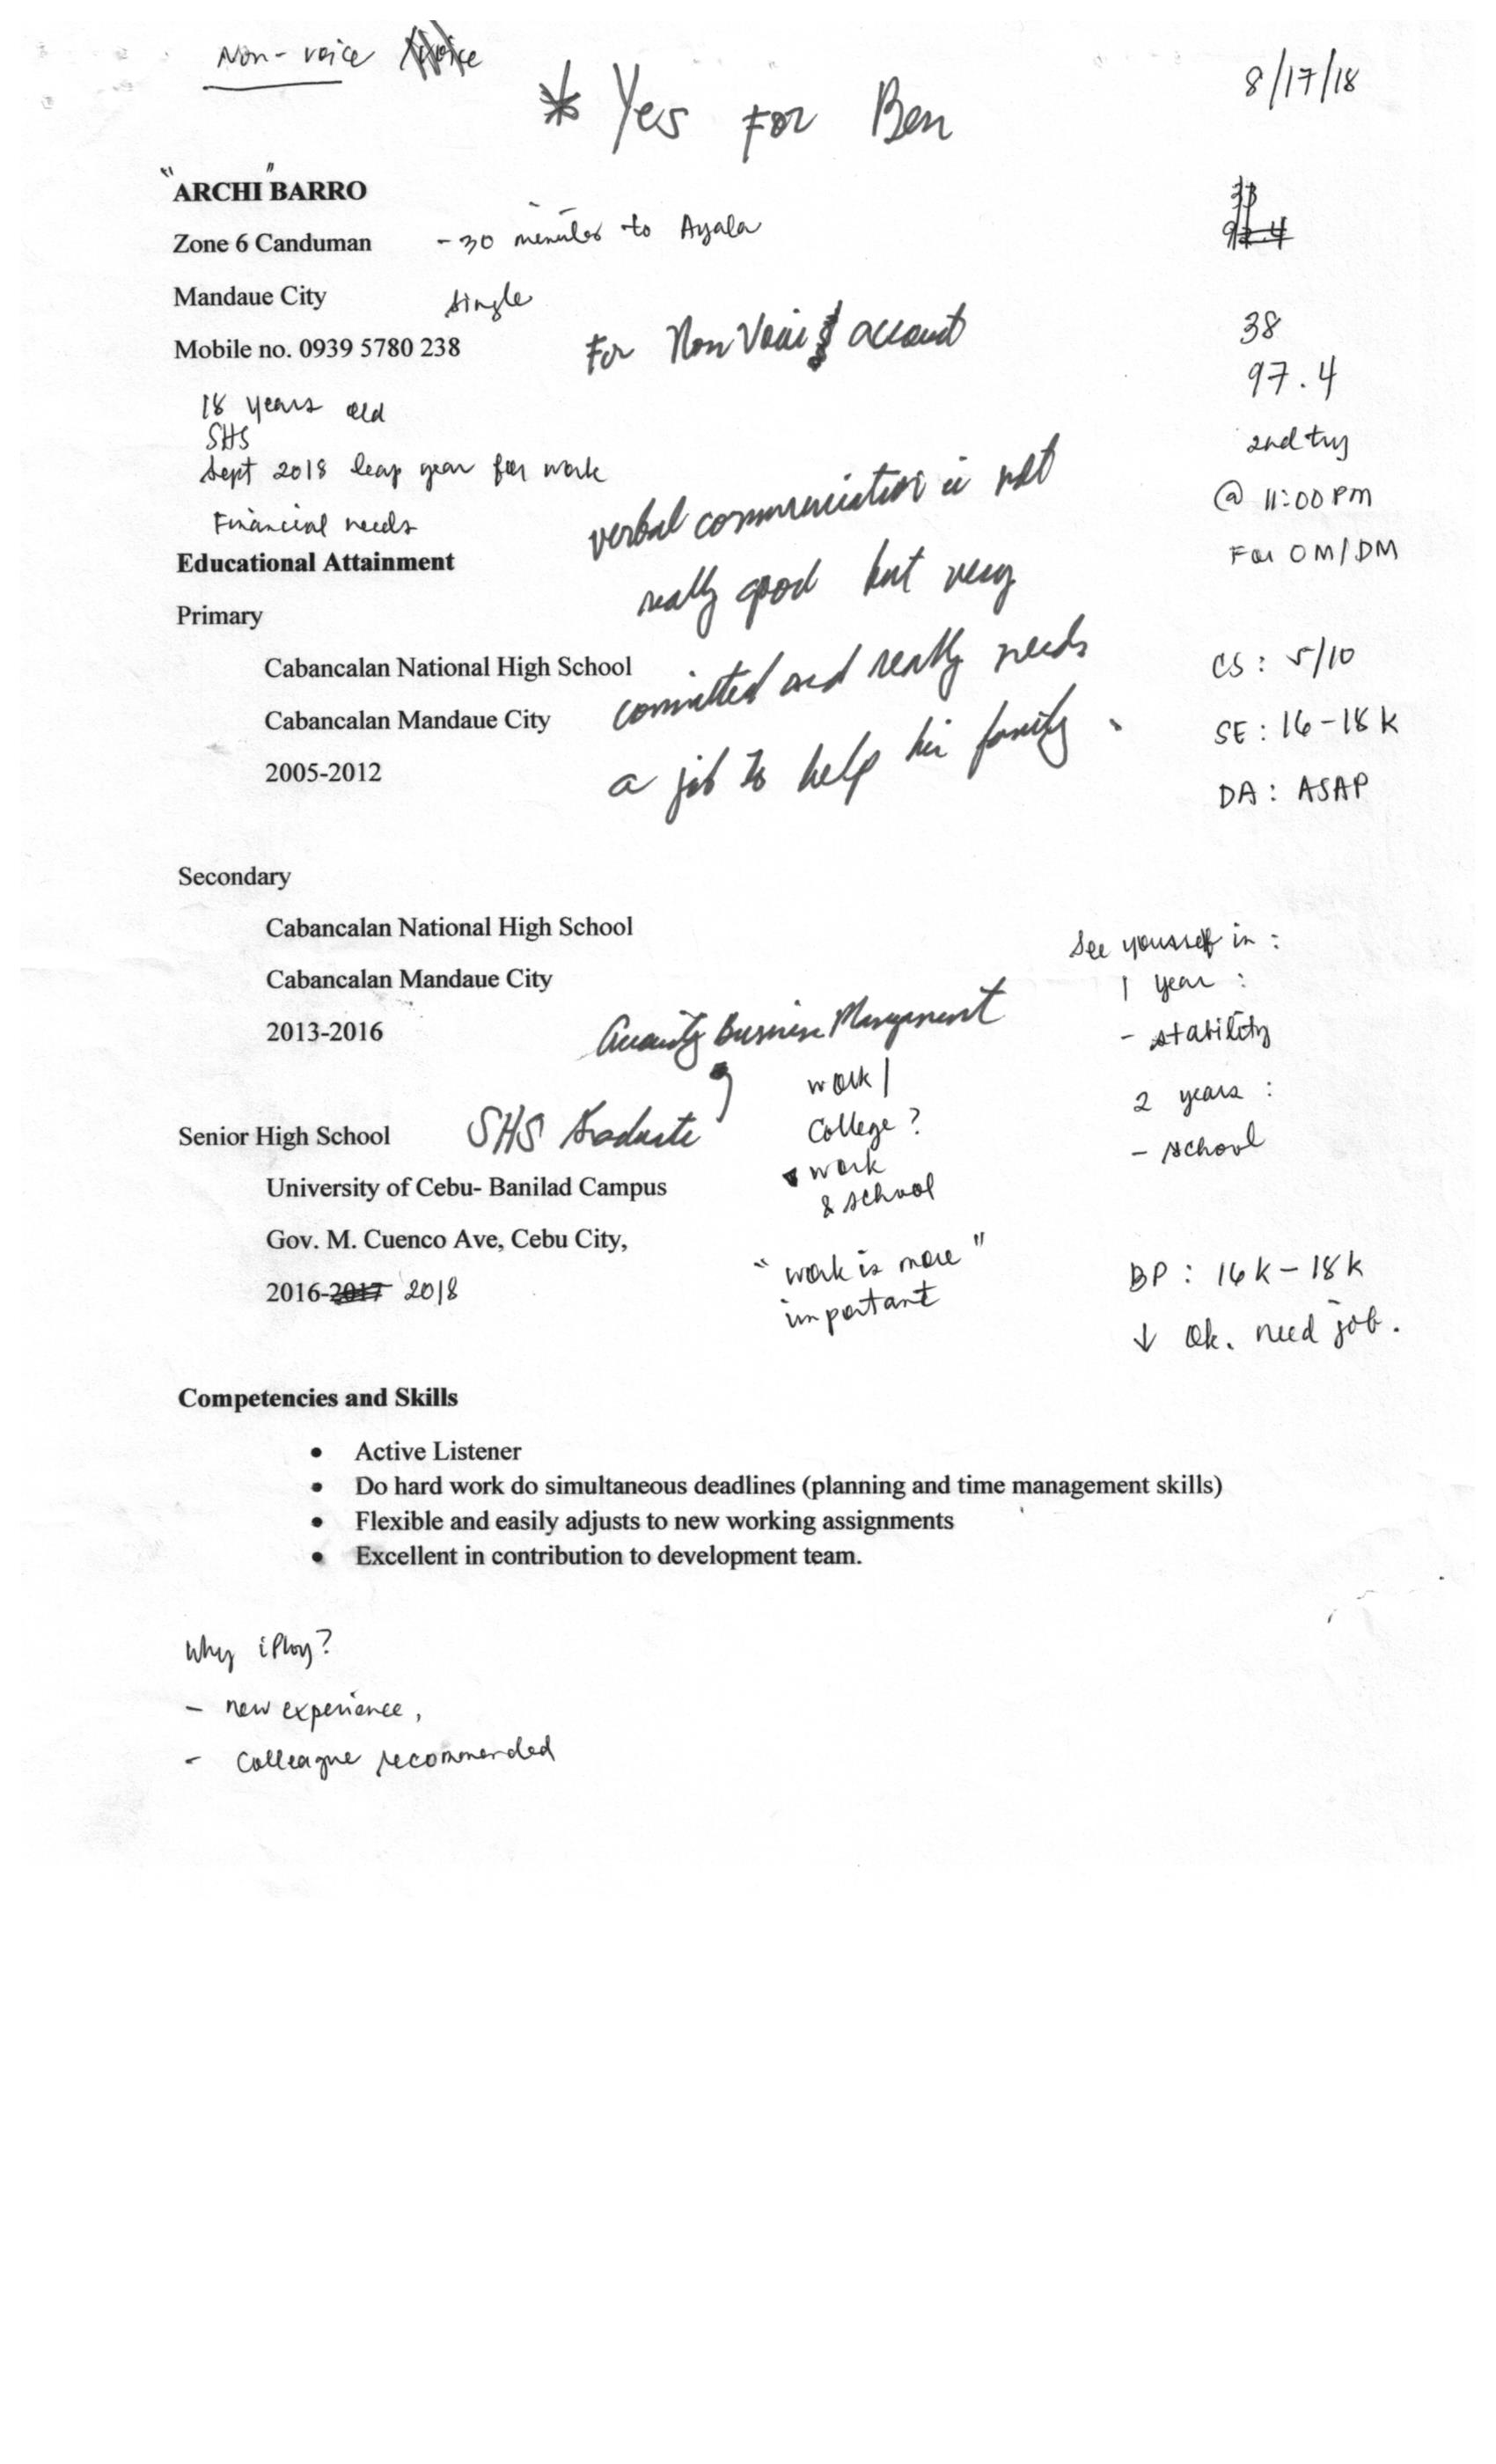 Non-voice
* Yes For Ben
8/17/18
"ARCHI" BARRO
33
97.4
Zone 6 Canduman
- 30 minutes to Ayala
Mandaue City
single
Mobile no. 0939 5780 238
For Non Voice account
38
97.4
18 years old
SHS
Sept 2018 leap year for work
Financial needs
2nd try
@ 11:00 PM
For OM/DM
verbal communication is not
really good but very
committed and really needs
a job to help his family.
Educational Attainment
Primary
Cabancalan National High School
Cabancalan Mandaue City
2005-2012
CS: 5/10
SE: 16-18 K
DA: ASAP
Secondary
Cabancalan National High School
Cabancalan Mandaue City
2013-2016
See yourself in:
1 year:
- stability
2 years:
- school
Business Management
work/
College?
work
& school
Senior High School
SHS Graduate
University of Cebu- Banilad Campus
Gov. M. Cuenco Ave, Cebu City,
2016-2017 2018
"work is more"
important
BP: 16k-18k
↓ Ok. need job.
Competencies and Skills
• Active Listener
• Do hard work do simultaneous deadlines (planning and time management skills)
• Flexible and easily adjusts to new working assignments
• Excellent in contribution to development team.
Why iPloy?
- new experience,
- Colleague recommended